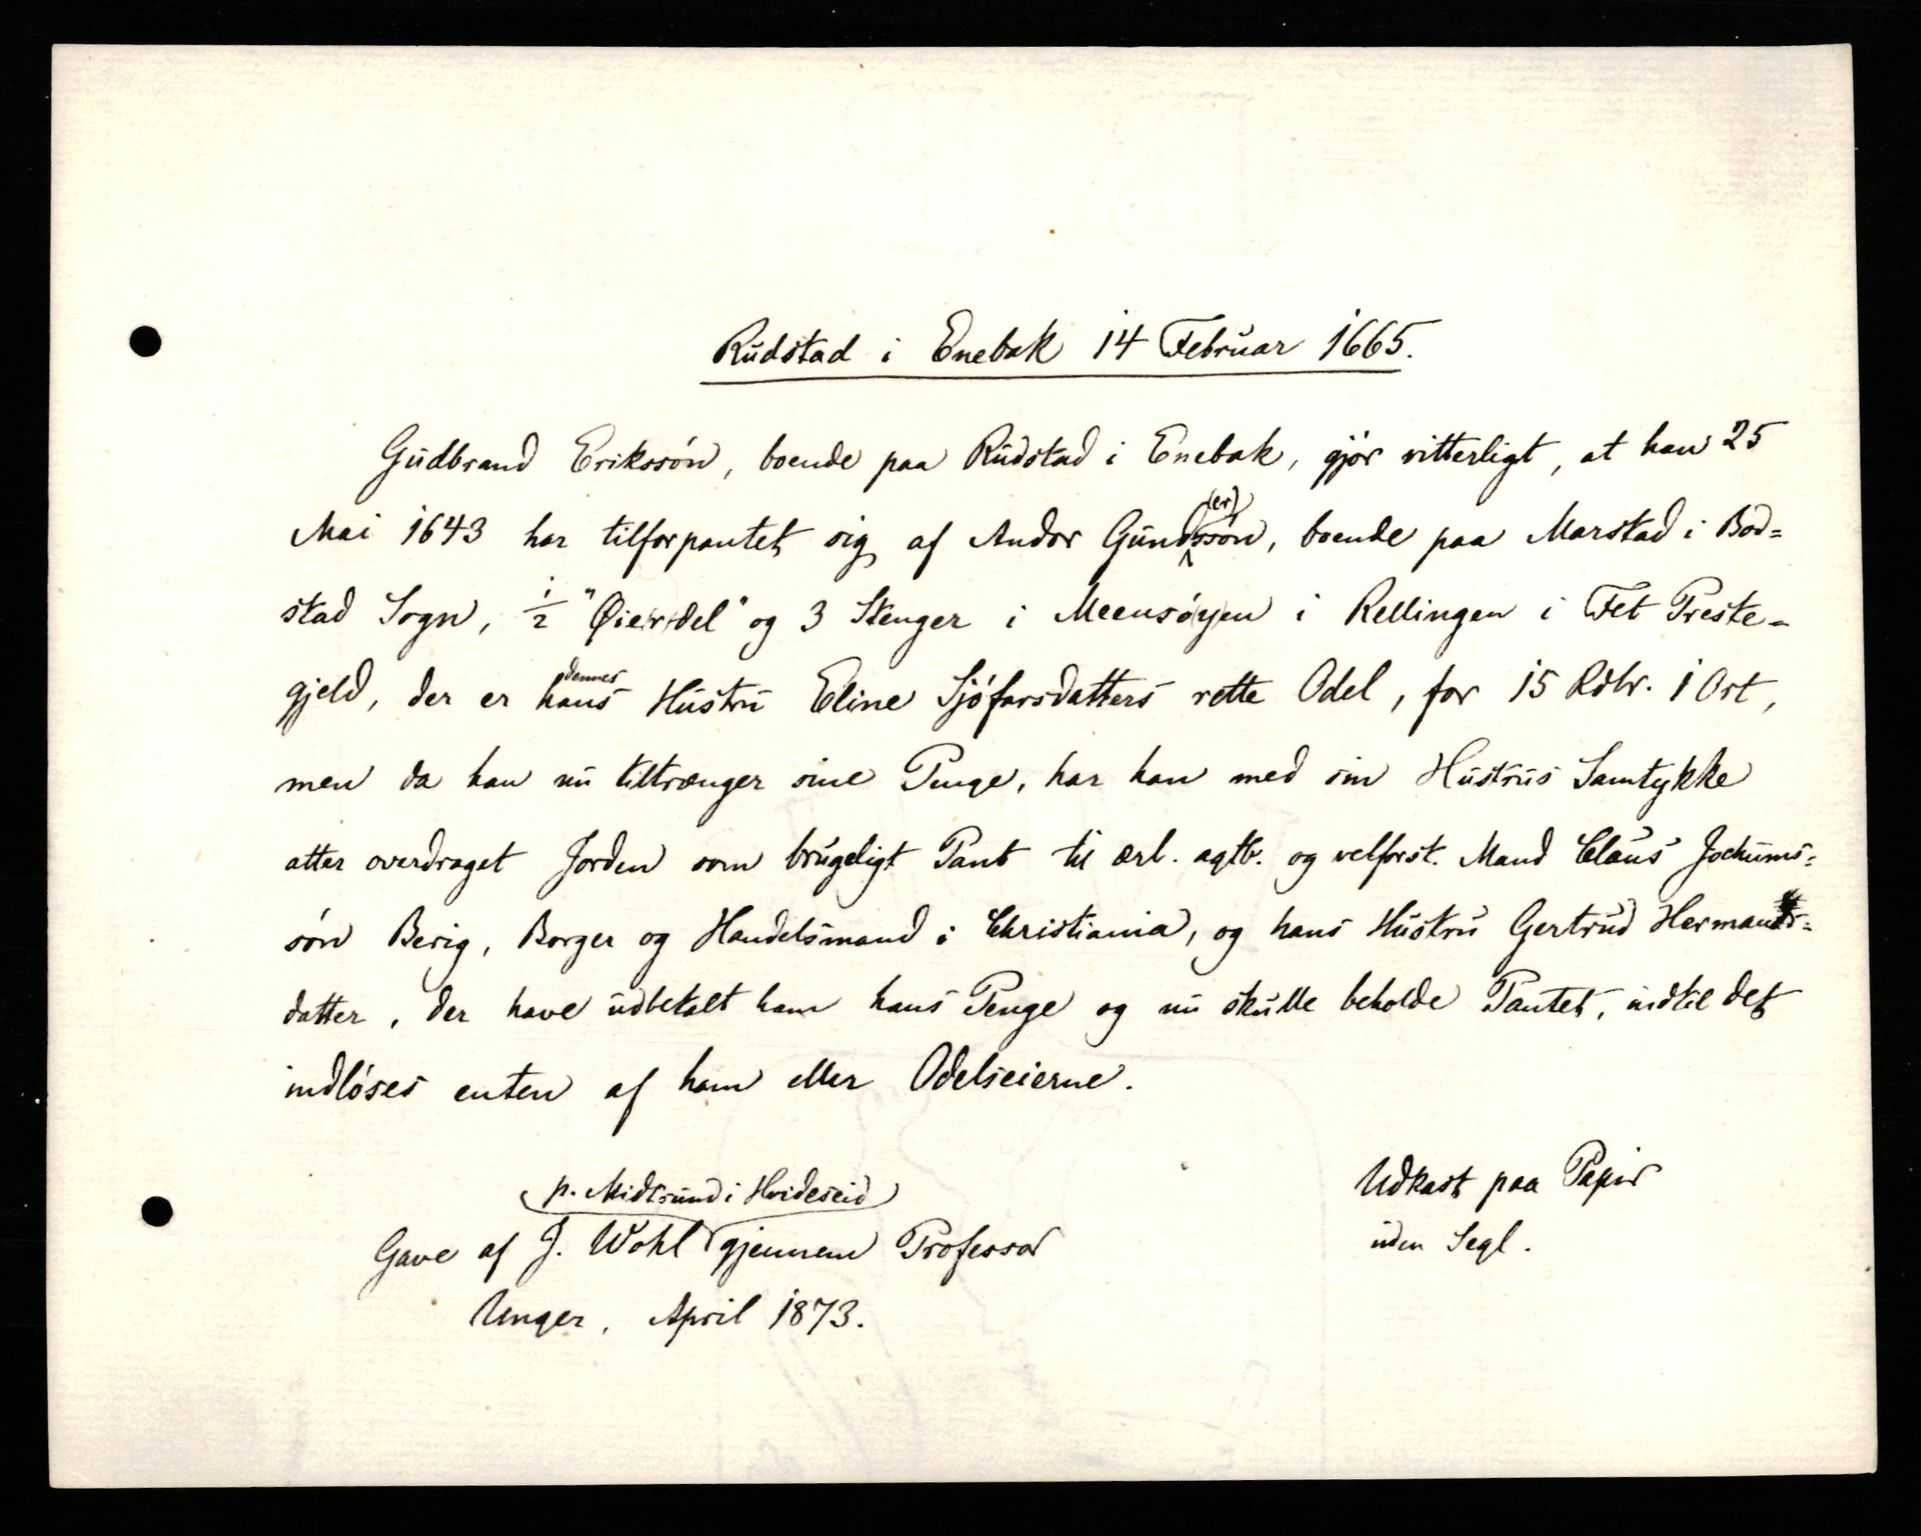 Rudstad i Enebak 14 Februar 1665.
Gudbrand Erikssøn, boende paa Rudstad i Enebak, gjør vitterligt, at han 25
Mai 1643 har tilforpantet sig af Andor Gund(er)ssøn, boende paa Marstad i Bod=
stad Sogn, 1/2 "Øierdel" og 3 Stenger i Meensøyen i Rellingen i Fet Preste=
gjeld, der er dennes hans Hustru Eline Sjøfarsdatters rette Odel, for 15 Rdlr. 1 Ort,
men da han nu tiltrænger sine Penge, har han med sin Hustrus Samtykke
atter overdraget Jorden som brugeligt Pant til ærl. agtb. og velforst. Mand Claus Jochums=
søn Berig, Borger og Handelsmand i Christiania, og hans Hustru Gertrud Hermands=
datter, der have udbetalt ham hans Penge og nu skulle beholde Pantet, indtil det
indløses enten af ham eller Odelseierne.
p. Midtsund i Hvideseid
Gave af J. Wohl gjennem Professor
Unger, April 1873.
Udkast paa Papir
uden Segl.